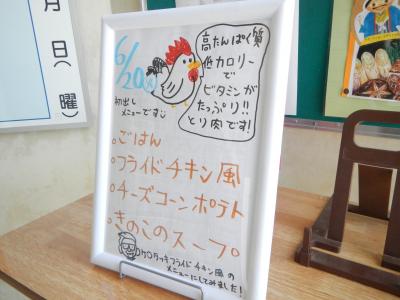 月
日
(曜)
6/20(火)
初出し
メニューです
高たんぱく質
低カロリー
で
ビタミンが
たっぷり!!
とり肉です!
。ごはん
。フライドチキン風
。チーズコーンポテト
。きのこのスープ
フライドチキン風の
メニューにしてみました!